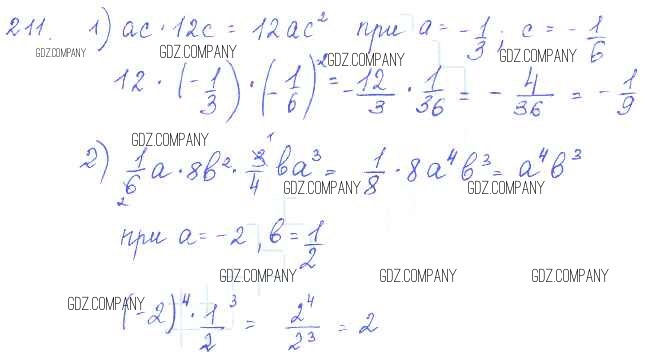 211. 1) ac · 12c = 12ac² при a = -1/3; c = -1/6
GDZ.COMPANY GDZ.COMPANY GDZ.COMPANY GDZ.COMPANY
12 · (-1/3) · (-1/6)² = -12/3 · 1/36 = -4/36 = -1/9
GDZ.COMPANY
2) 1/6 a · 8b² · 3/4 ba³ = 1/8 · 8a⁴b³ = a⁴b³
2 1
GDZ.COMPANY GDZ.COMPANY
при a = -2, b = 1/2
GDZ.COMPANY GDZ.COMPANY GDZ.COMPANY
GDZ.COMPANY
(-2)⁴ · 1/2³ = 2⁴/2³ = 2